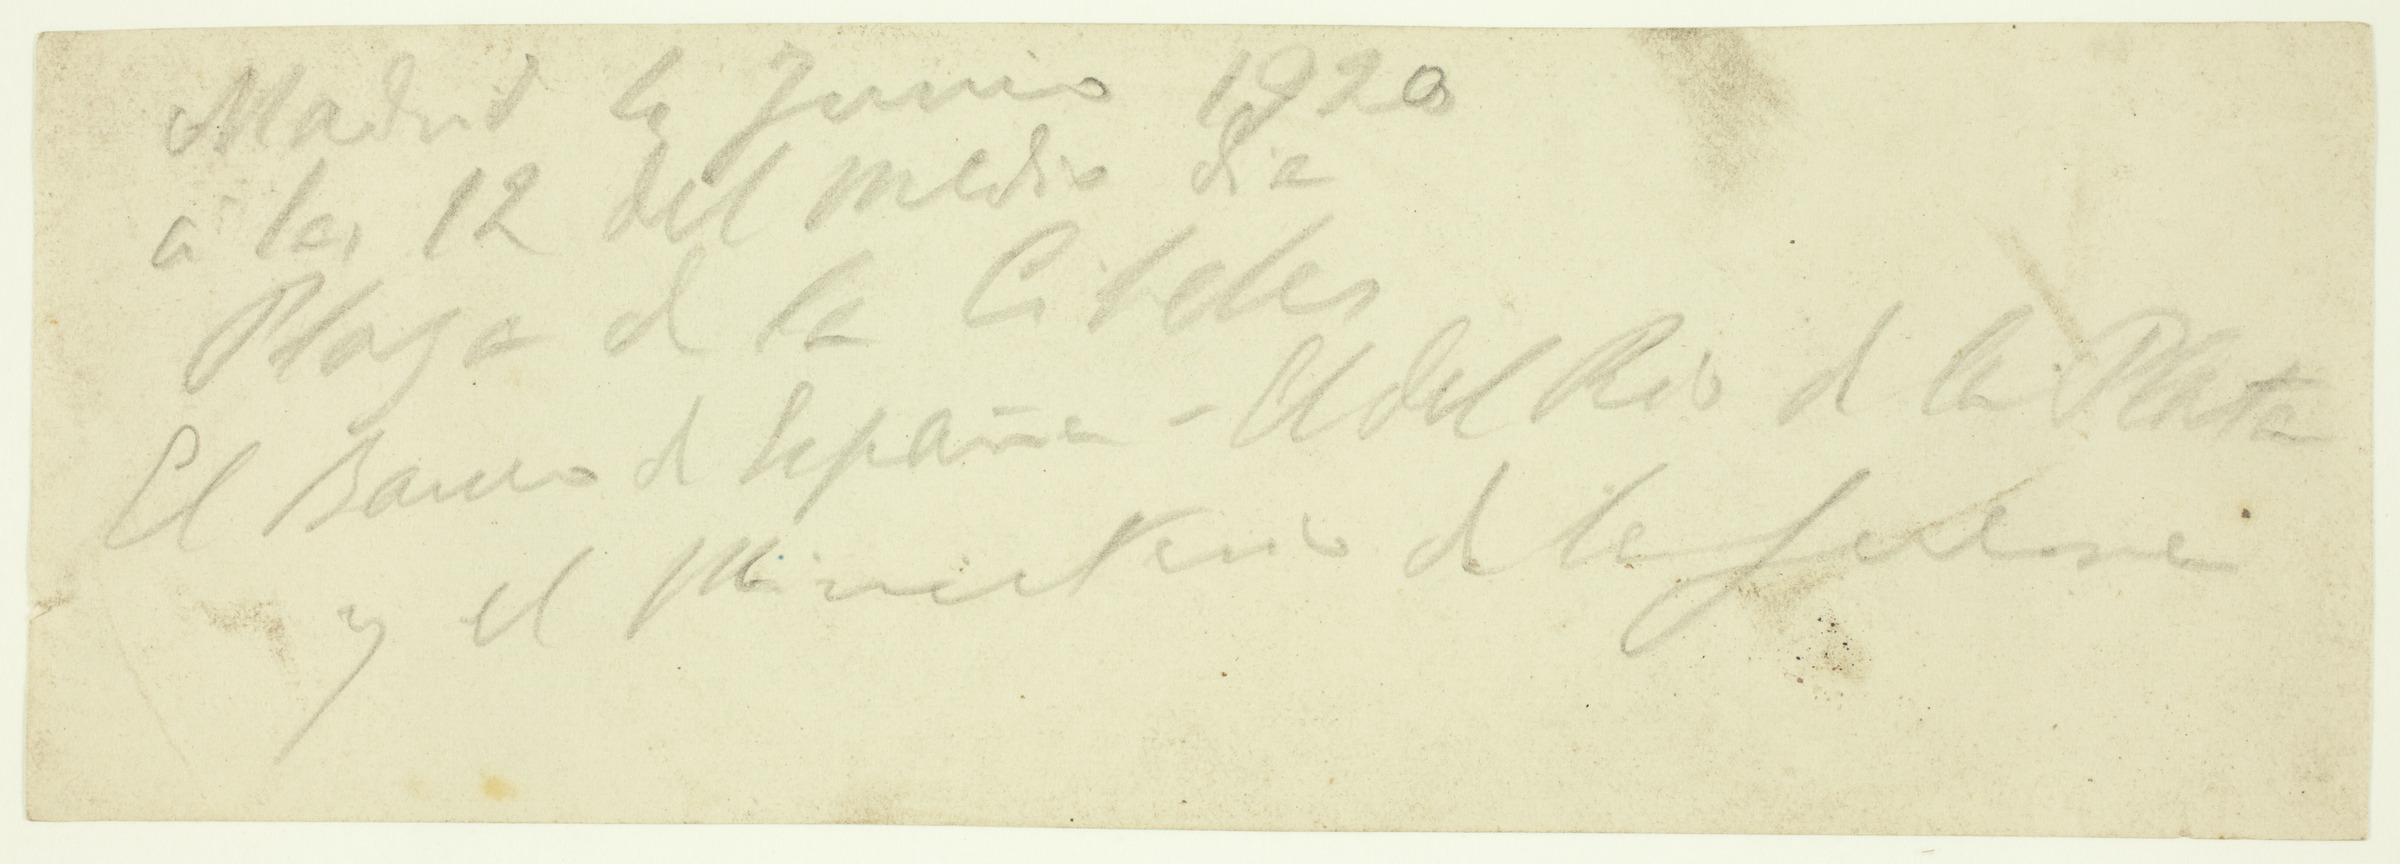 Madrid Junio 1920
a las 12 del medio dia
Plaza d la Cibeles
El Banco d España - El del Rio d la Plata
y el Ministerio d la Guerra